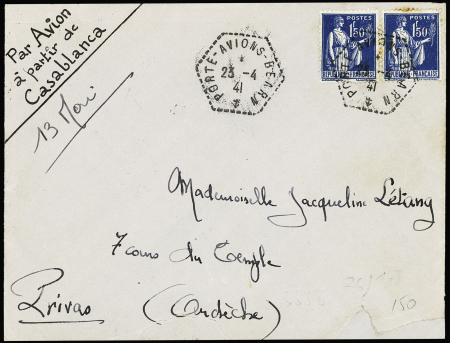 Par Avion
à partir de
Casablanca
13 Mai
PORTE-AVIONS-BEARN
23-4
41
POSTES
1F50
REPUBLIQUE FRANÇAISE
POSTES
1F50
REPUBLIQUE FRANÇAISE
PORTE-AVIONS-BEARN
41
Mademoiselle Jacqueline Létang
7 cours du Temple
Privas
(Ardèche)
150